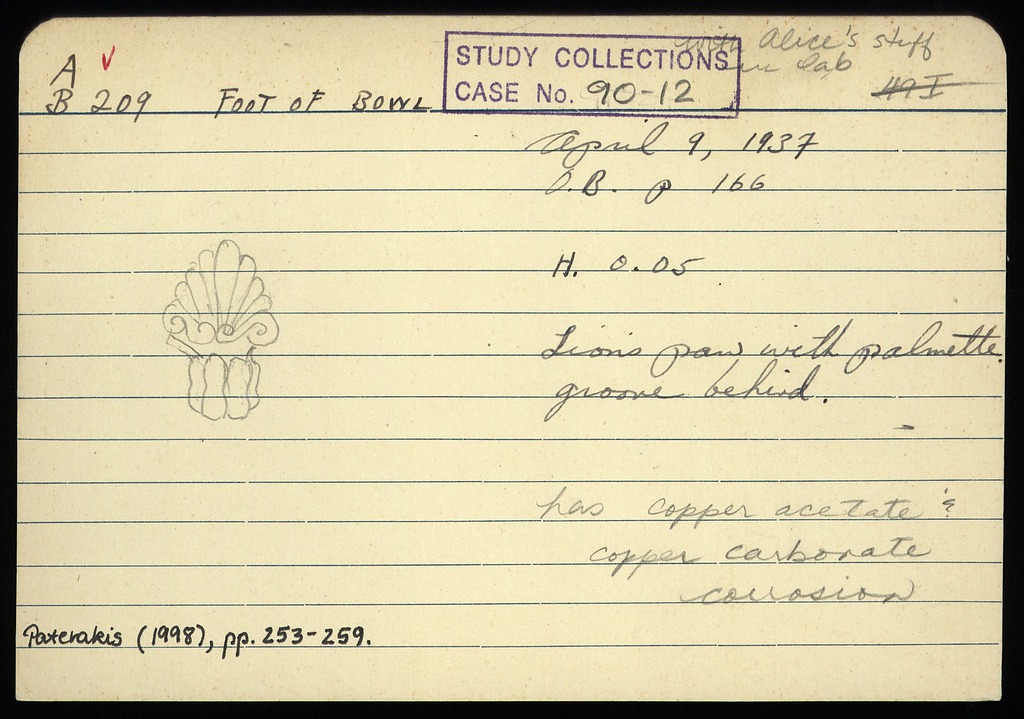 A ✓
B 209 FOOT OF BOWL
STUDY COLLECTIONS
CASE No. 90-12
with Alice's stuff
in lab
49 I
April 9, 1937
O.B. p 166
H. 0.05
Lion's paw with palmette.
groove behind.
has copper acetate &
copper carbonate
corrosion
Paterakis (1998), pp. 253-259.